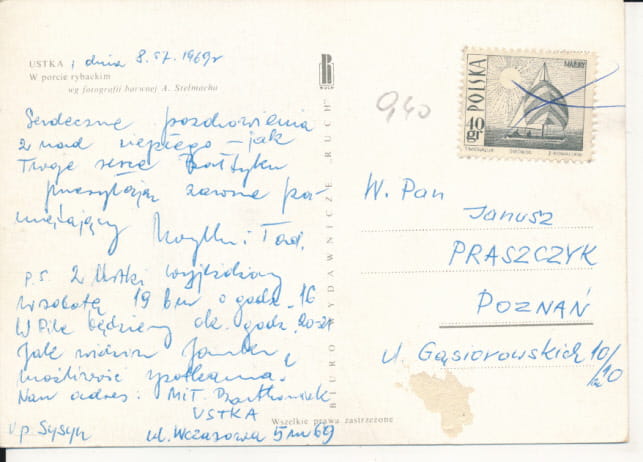 USTKA, dnia 8. VI. 1969r
W porcie rybackim
wg fotografii barwnej A. Stelmacha
Serdeczne pozdrowienia
z nad ciepłego – jak
Twoje serce Bałtyku
przesyłają zawsze pa-
miętający i Tad.
P.S. Z Ustki wyjeżdżamy
w sobotę 19 bm o godz. 16
W Pile będziemy ok. godz. 20-21
Jak widzisz
możliwość spotkania.
Nasz adres: M.T.
USTKA
u p. Sysyk ul. Wczasowa 5 m 69
RUCH
BIURO WYDAWNICZE „RUCH”
Wszelkie prawa zastrzeżone
0,40
POLSKA
40 gr
MARINY
W. Pan
Janusz
PRASZCZYK
POZNAŃ
ul. Gąsiorowskich 10/
m 10